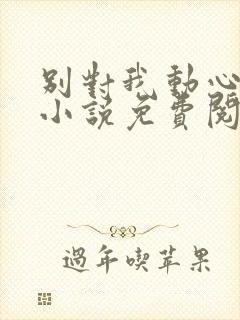 別對我動心
小說免費閱
過年喫苹果